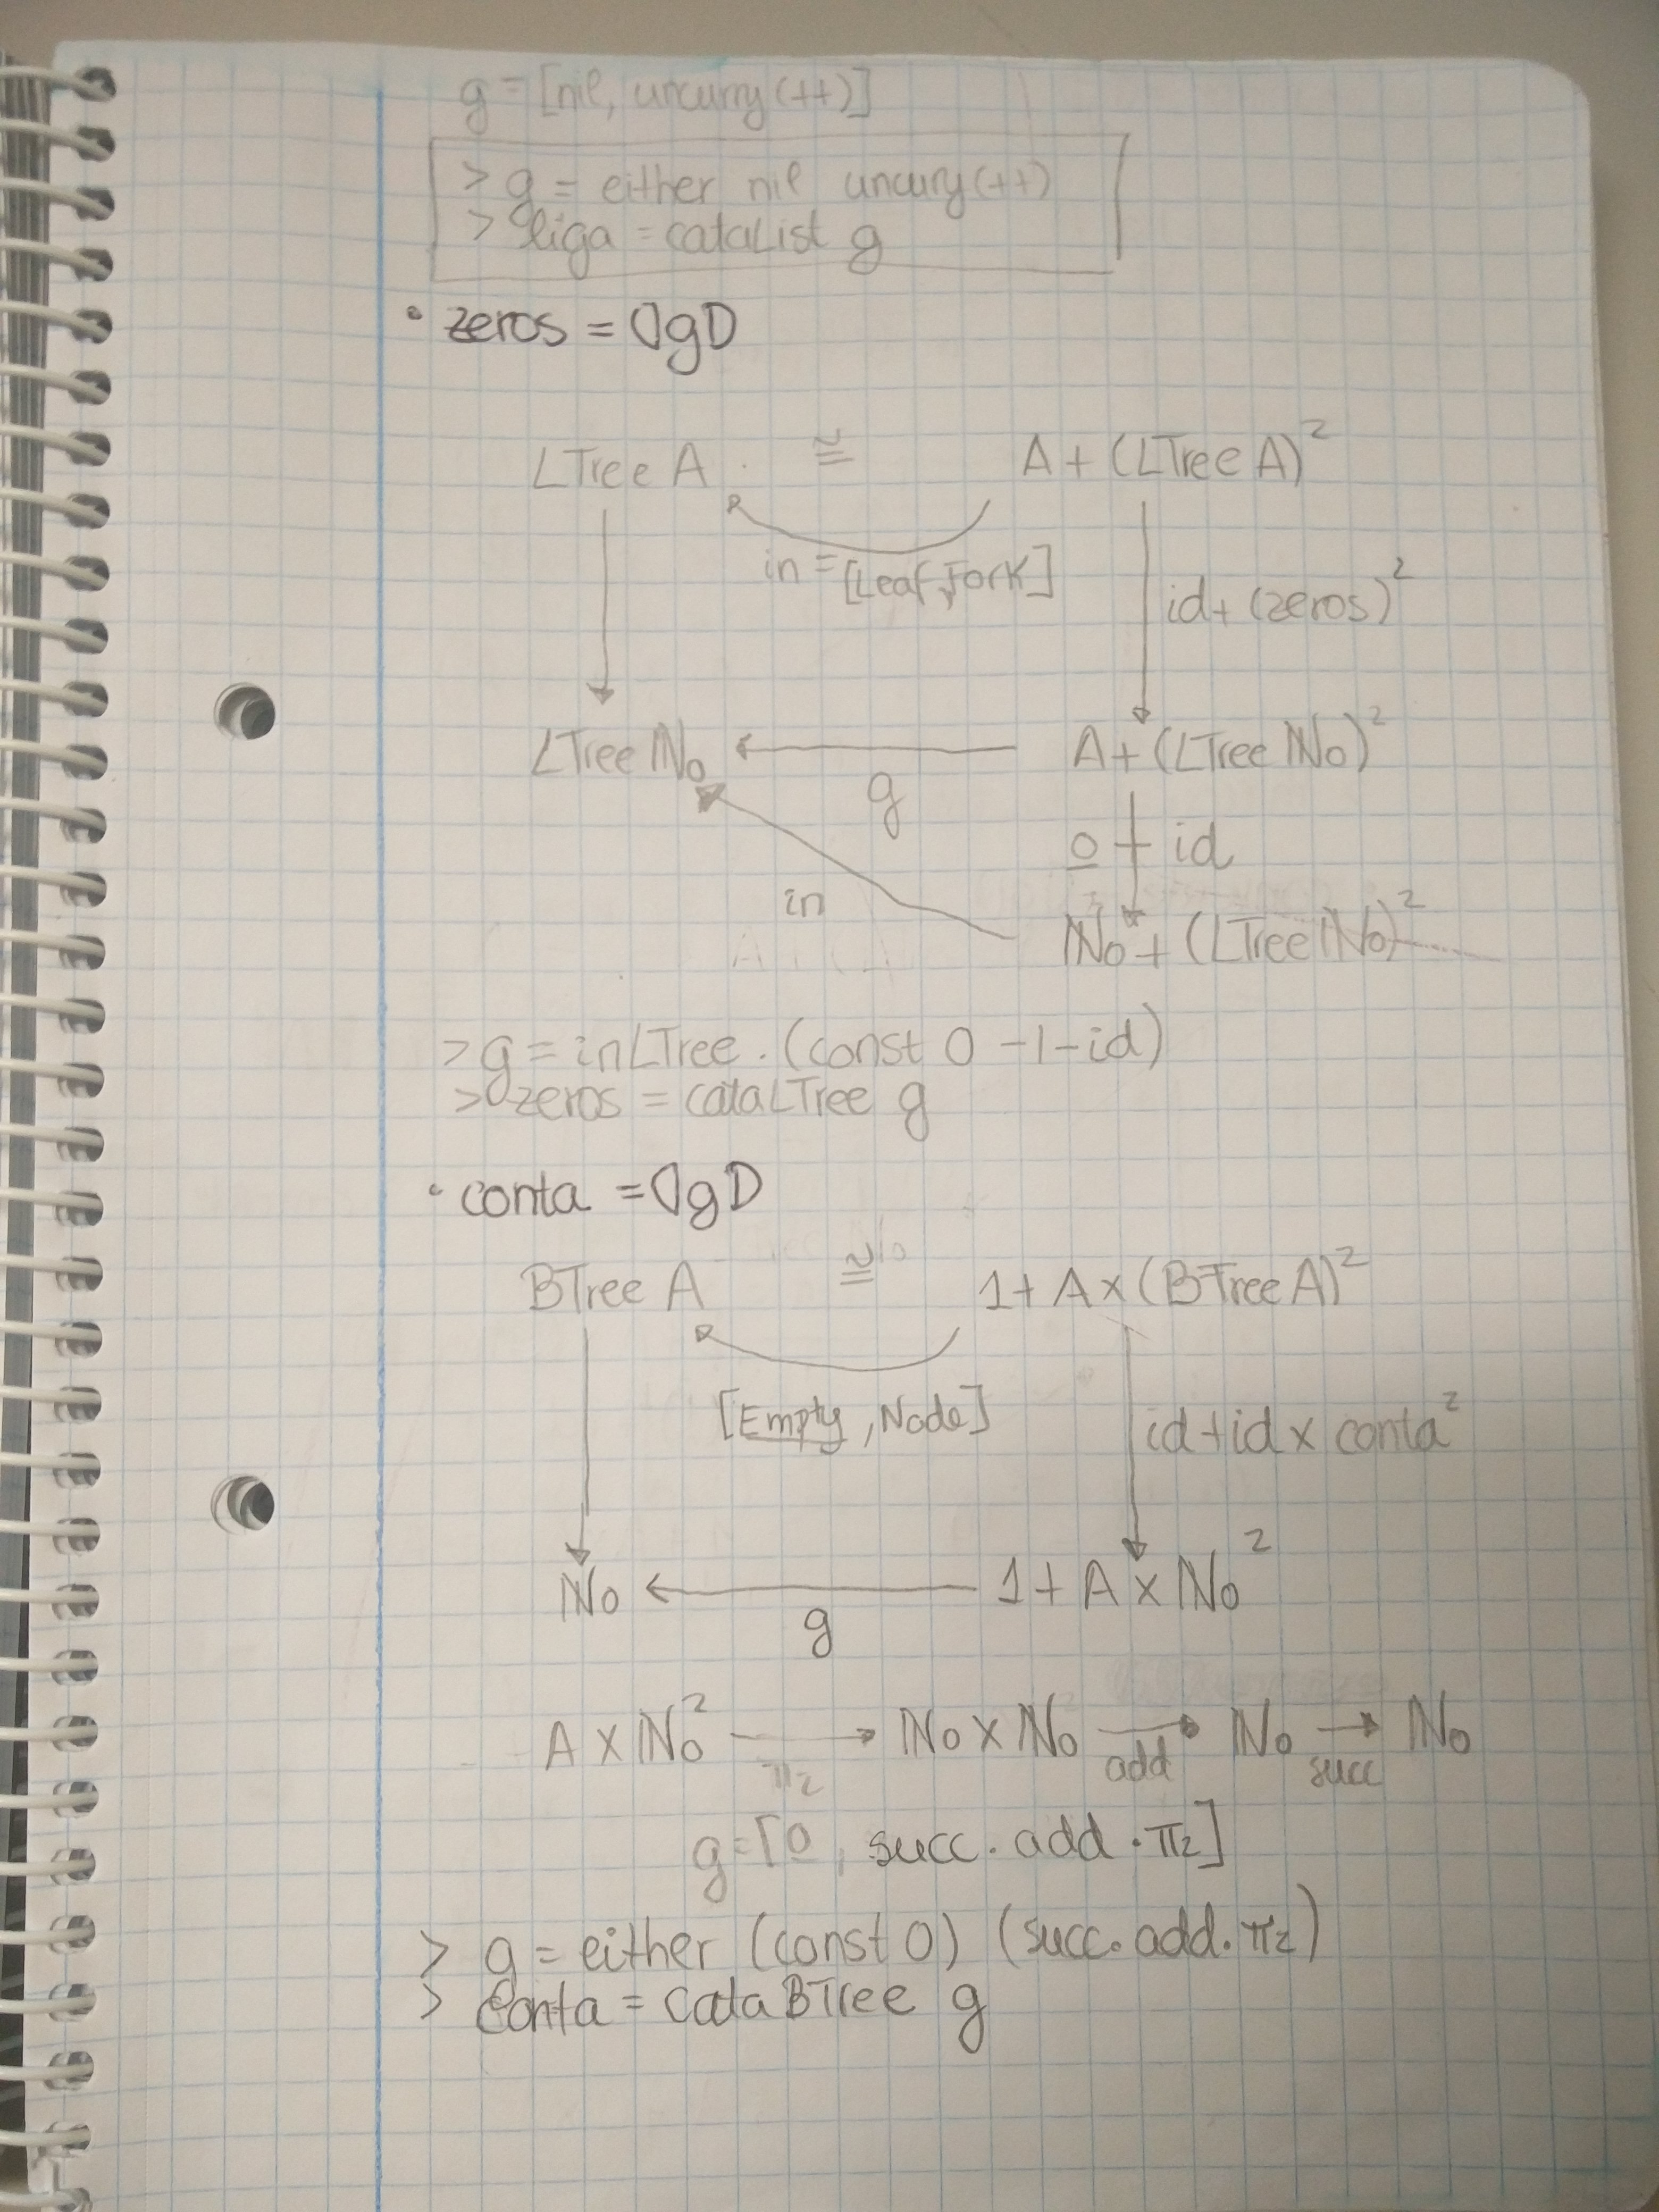 g = [nil, uncurry (++)]
> g = either nil uncury (++)
> liga = cataList g
• zeros = ⦇g⦈
LTree A ≅ A + (LTree A)²
in = [Leaf, Fork]
id + (zeros)²
LTree ℕ₀ ← A + (LTree ℕ₀)²
g
0̲ + id
in
ℕ₀ + (LTree ℕ₀)²
> g = inLTree . (const 0 -|- id)
> zeros = cataLTree g
• conta = ⦇g⦈
BTree A ≅ 1 + A × (BTree A)²
[E̲m̲p̲t̲y̲, Node]
id + id × conta²
ℕ₀ ← 1 + A × ℕ₀²
g
A × ℕ₀² → ℕ₀ × ℕ₀ → ℕ₀ → ℕ₀
π₂ add succ
g = [0̲, succ . add . π₂]
> g = either (const 0) (succ . add . π₂)
> conta = cataBTree g